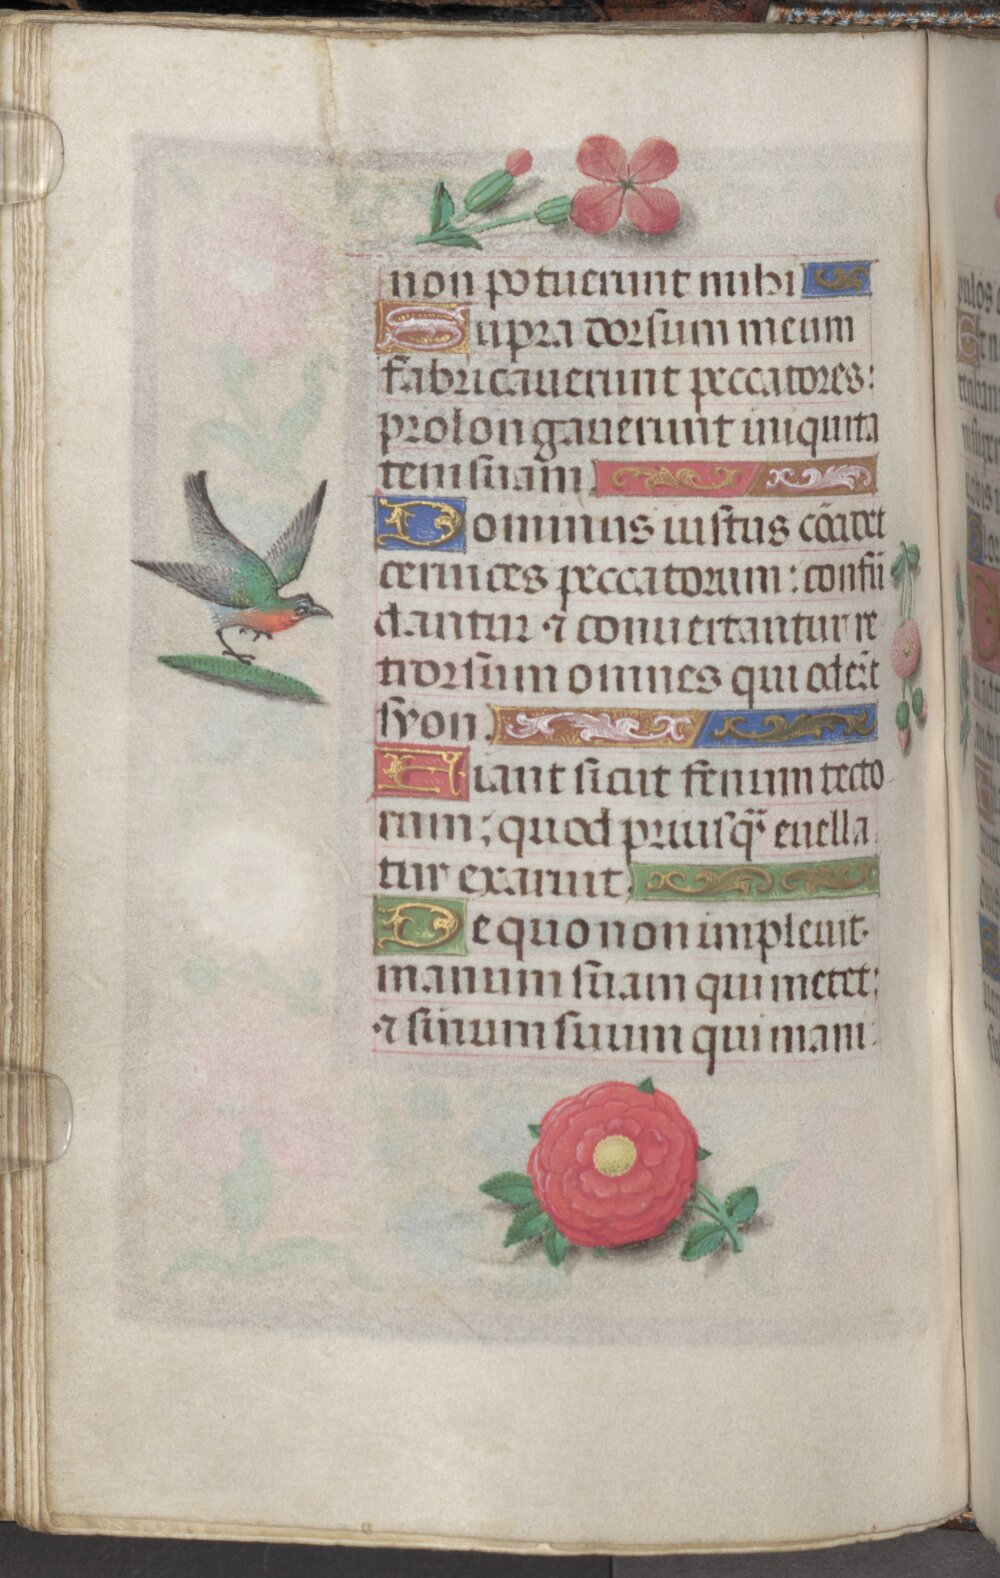 non potuerunt mihi
Supra dorsum meum
fabricauerunt peccatores:
prolongauerunt iniquita
tem suam.
Dominus iustus cōcidet
ceruices peccatorum: confū
dantur ⁊ conuertantur re
trorsum omnes qui oderūt
syon.
Fiant sicut fenum tecto
rum; quod priusq̄ᷓ euella
tur exaruit.
De quo non impleuit
manum suam qui metet:
⁊ sinum suum qui mani